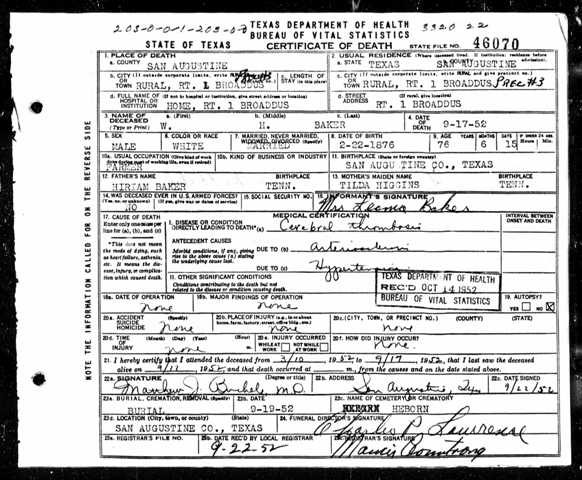 203-0-0-1-203-0-0
TEXAS DEPARTMENT OF HEALTH
3320 22
BUREAU OF VITAL STATISTICS
STATE OF TEXAS
CERTIFICATE OF DEATH
STATE FILE NO. 46070
1. PLACE OF DEATH
a. COUNTY
SAN AUGUSTINE
2. USUAL RESIDENCE (Where deceased lived. If institution: residence before admission).
a. STATE TEXAS
b. COUNTY SAN AUGUSTINE
b. CITY (If outside corporate limits, write RURAL
OR TOWN RURAL, RT. 1 BROADDUS
c. LENGTH OF STAY (in this place)
c. CITY (If outside corporate limits, write RURAL and give precinct no.)
OR TOWN RURAL, RT. 1 BROADDUS PREC #3
d. FULL NAME OF (If not in hospital or institution, give street address or location)
HOSPITAL OR INSTITUTION HOME, RT. 1 BROADDUS
d. STREET ADDRESS (If rural, give location)
RT. 1 BROADDUS
3. NAME OF DECEASED (Type or Print)
a. (First) W.
b. (Middle) H.
c. (Last) BAKER
4. DATE OF DEATH 9-17-52
5. SEX MALE
6. COLOR OR RACE WHITE
7. MARRIED, NEVER MARRIED, WIDOWED, DIVORCED (Specify) MARRIED
8. DATE OF BIRTH 2-22-1876
9. AGE 76 6 15
10a. USUAL OCCUPATION (Give kind of work done during most of working life, even if retired) FARMER
10b. KIND OF BUSINESS OR INDUSTRY
11. BIRTHPLACE (State or foreign country)
SAN AUGUSTINE CO., TEXAS
12. FATHER'S NAME HIRIAM BAKER
BIRTHPLACE TENN.
13. MOTHER'S MAIDEN NAME TILDA HIGGINS
BIRTHPLACE TENN.
14. WAS DECEASED EVER IN U.S. ARMED FORCES? (Yes, no, or unknown) (If yes, give war or dates of service) NO
15. SOCIAL SECURITY NO.
16. INFORMANT'S SIGNATURE
Mrs. Leona Baker
17. CAUSE OF DEATH
Enter only one cause per line for (a), (b), and (c)
MEDICAL CERTIFICATION
INTERVAL BETWEEN ONSET AND DEATH
I. DISEASE OR CONDITION DIRECTLY LEADING TO DEATH* (a) Cerebral thrombosis
*This does not mean the mode of dying, such as heart failure, asthenia, etc. It means the disease, injury, or complication which caused death.
ANTECEDENT CAUSES
Morbid conditions, if any, giving rise to the above cause (a) stating the underlying cause last.
DUE TO (b)
DUE TO (c) Hypertension
II. OTHER SIGNIFICANT CONDITIONS
Conditions contributing to the death but not related to the disease or condition causing death.
TEXAS DEPARTMENT OF HEALTH
REC'D OCT 14 1952
BUREAU OF VITAL STATISTICS
18a. DATE OF OPERATION none
18b. MAJOR FINDINGS OF OPERATION none
19. AUTOPSY?
YES NO X
20a. ACCIDENT SUICIDE HOMICIDE (Specify) none
20b. PLACE OF INJURY (e.g., in or about home, farm, factory, street, office bldg., etc.) none
20c. (CITY, TOWN, OR PRECINCT NO.) (COUNTY) (STATE)
none
20d. TIME OF INJURY (Month) (Day) (Year) (Hour) none
20e. INJURY OCCURRED
WHILE AT WORK NOT WHILE AT WORK
20f. HOW DID INJURY OCCUR? none.
21. I hereby certify that I attended the deceased from 3/10 1952 to 9/17 1952, that I last saw the deceased
alive on 9/11 1952 and that death occurred at m., from the causes and on the date stated above.
22a. SIGNATURE (Degree or title) M.D.
22b. ADDRESS San Augustine, Tex
22c. DATE SIGNED 9/22/52
23a. BURIAL, CREMATION, REMOVAL (Specify) BURIAL
23b. DATE 9-19-52
23c. NAME OF CEMETERY OR CREMATORY HEBORN
23d. LOCATION (City, town, or county) (State)
SAN AUGUSTINE CO., TEXAS
24. FUNERAL DIRECTOR'S SIGNATURE
Charles P. Lawrence
25a. REGISTRAR'S FILE NO.
25b. DATE REC'D BY LOCAL REGISTRAR 9-22-52
25c. REGISTRAR'S SIGNATURE
Armstrong
NOTE THE INFORMATION CALLED FOR ON THE REVERSE SIDE